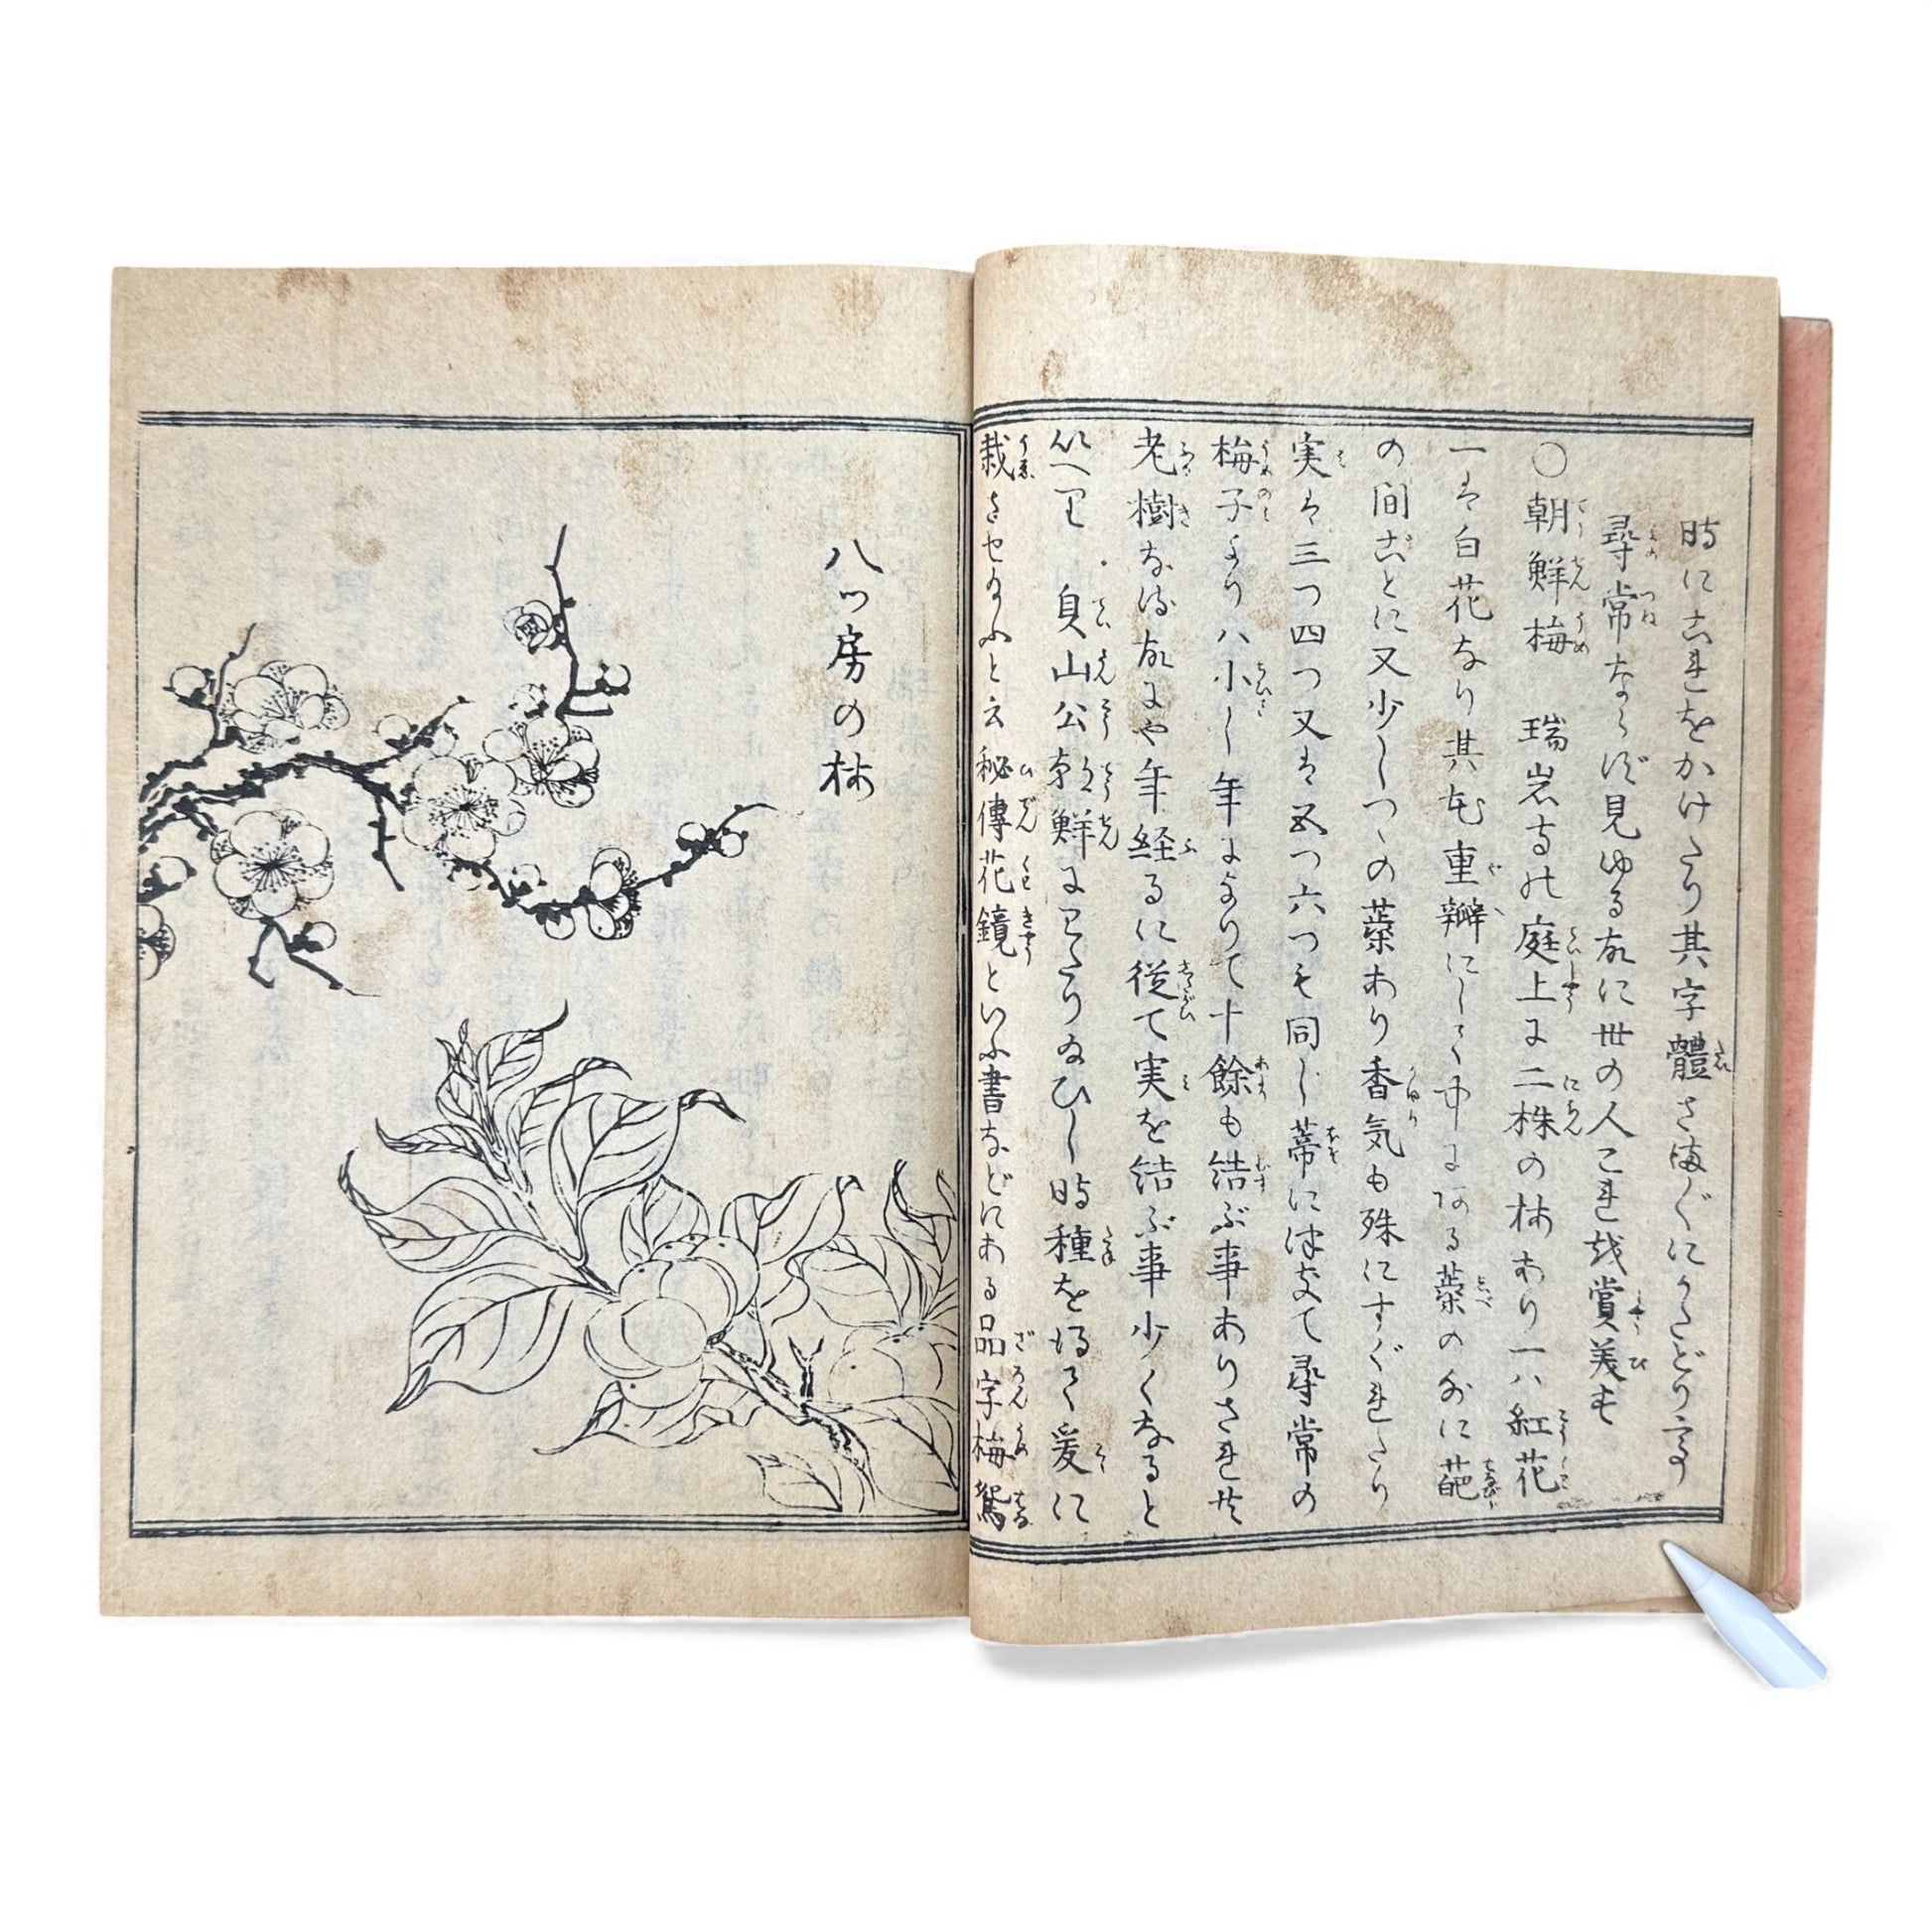 時にこれをかけたり其字體さまぐにかたどり高
尋常ならず見ゆる故に世の人これを賞美す
○朝鮮梅 瑞岩寺の庭上に二株の梅あり一ハ紅花
一は白花なり其花重瓣にして中にある蘂の外に葩
の間ごとに又少しつゝの蘂あり香気も殊にすぐれたり
実は三つ四つ又は五つ六つも同じ蒂につきて尋常の
梅子よりハ小し年によりて十餘も結ぶ事ありされ共
老樹なる故にや年経るに従て実を結ぶ事少くなると
いへり 貞山公朝鮮にわたり給ひし時種を得て爰に
栽させ給ふと云秘傳花鏡といふ書などにある品字梅鴛
八ッ房の梅